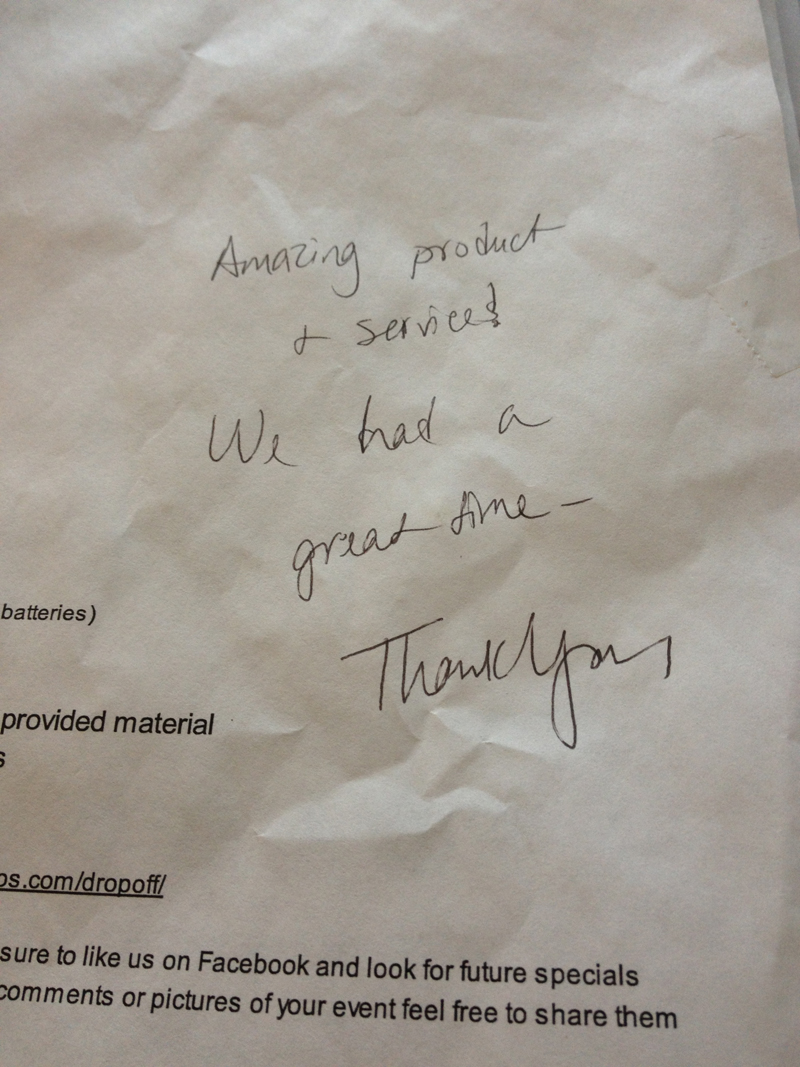 Amazing product
+ service!
We had a
great time -
Thank You
batteries)
provided material
s
ps.com/dropoff/
sure to like us on Facebook and look for future specials
comments or pictures of your event feel free to share them